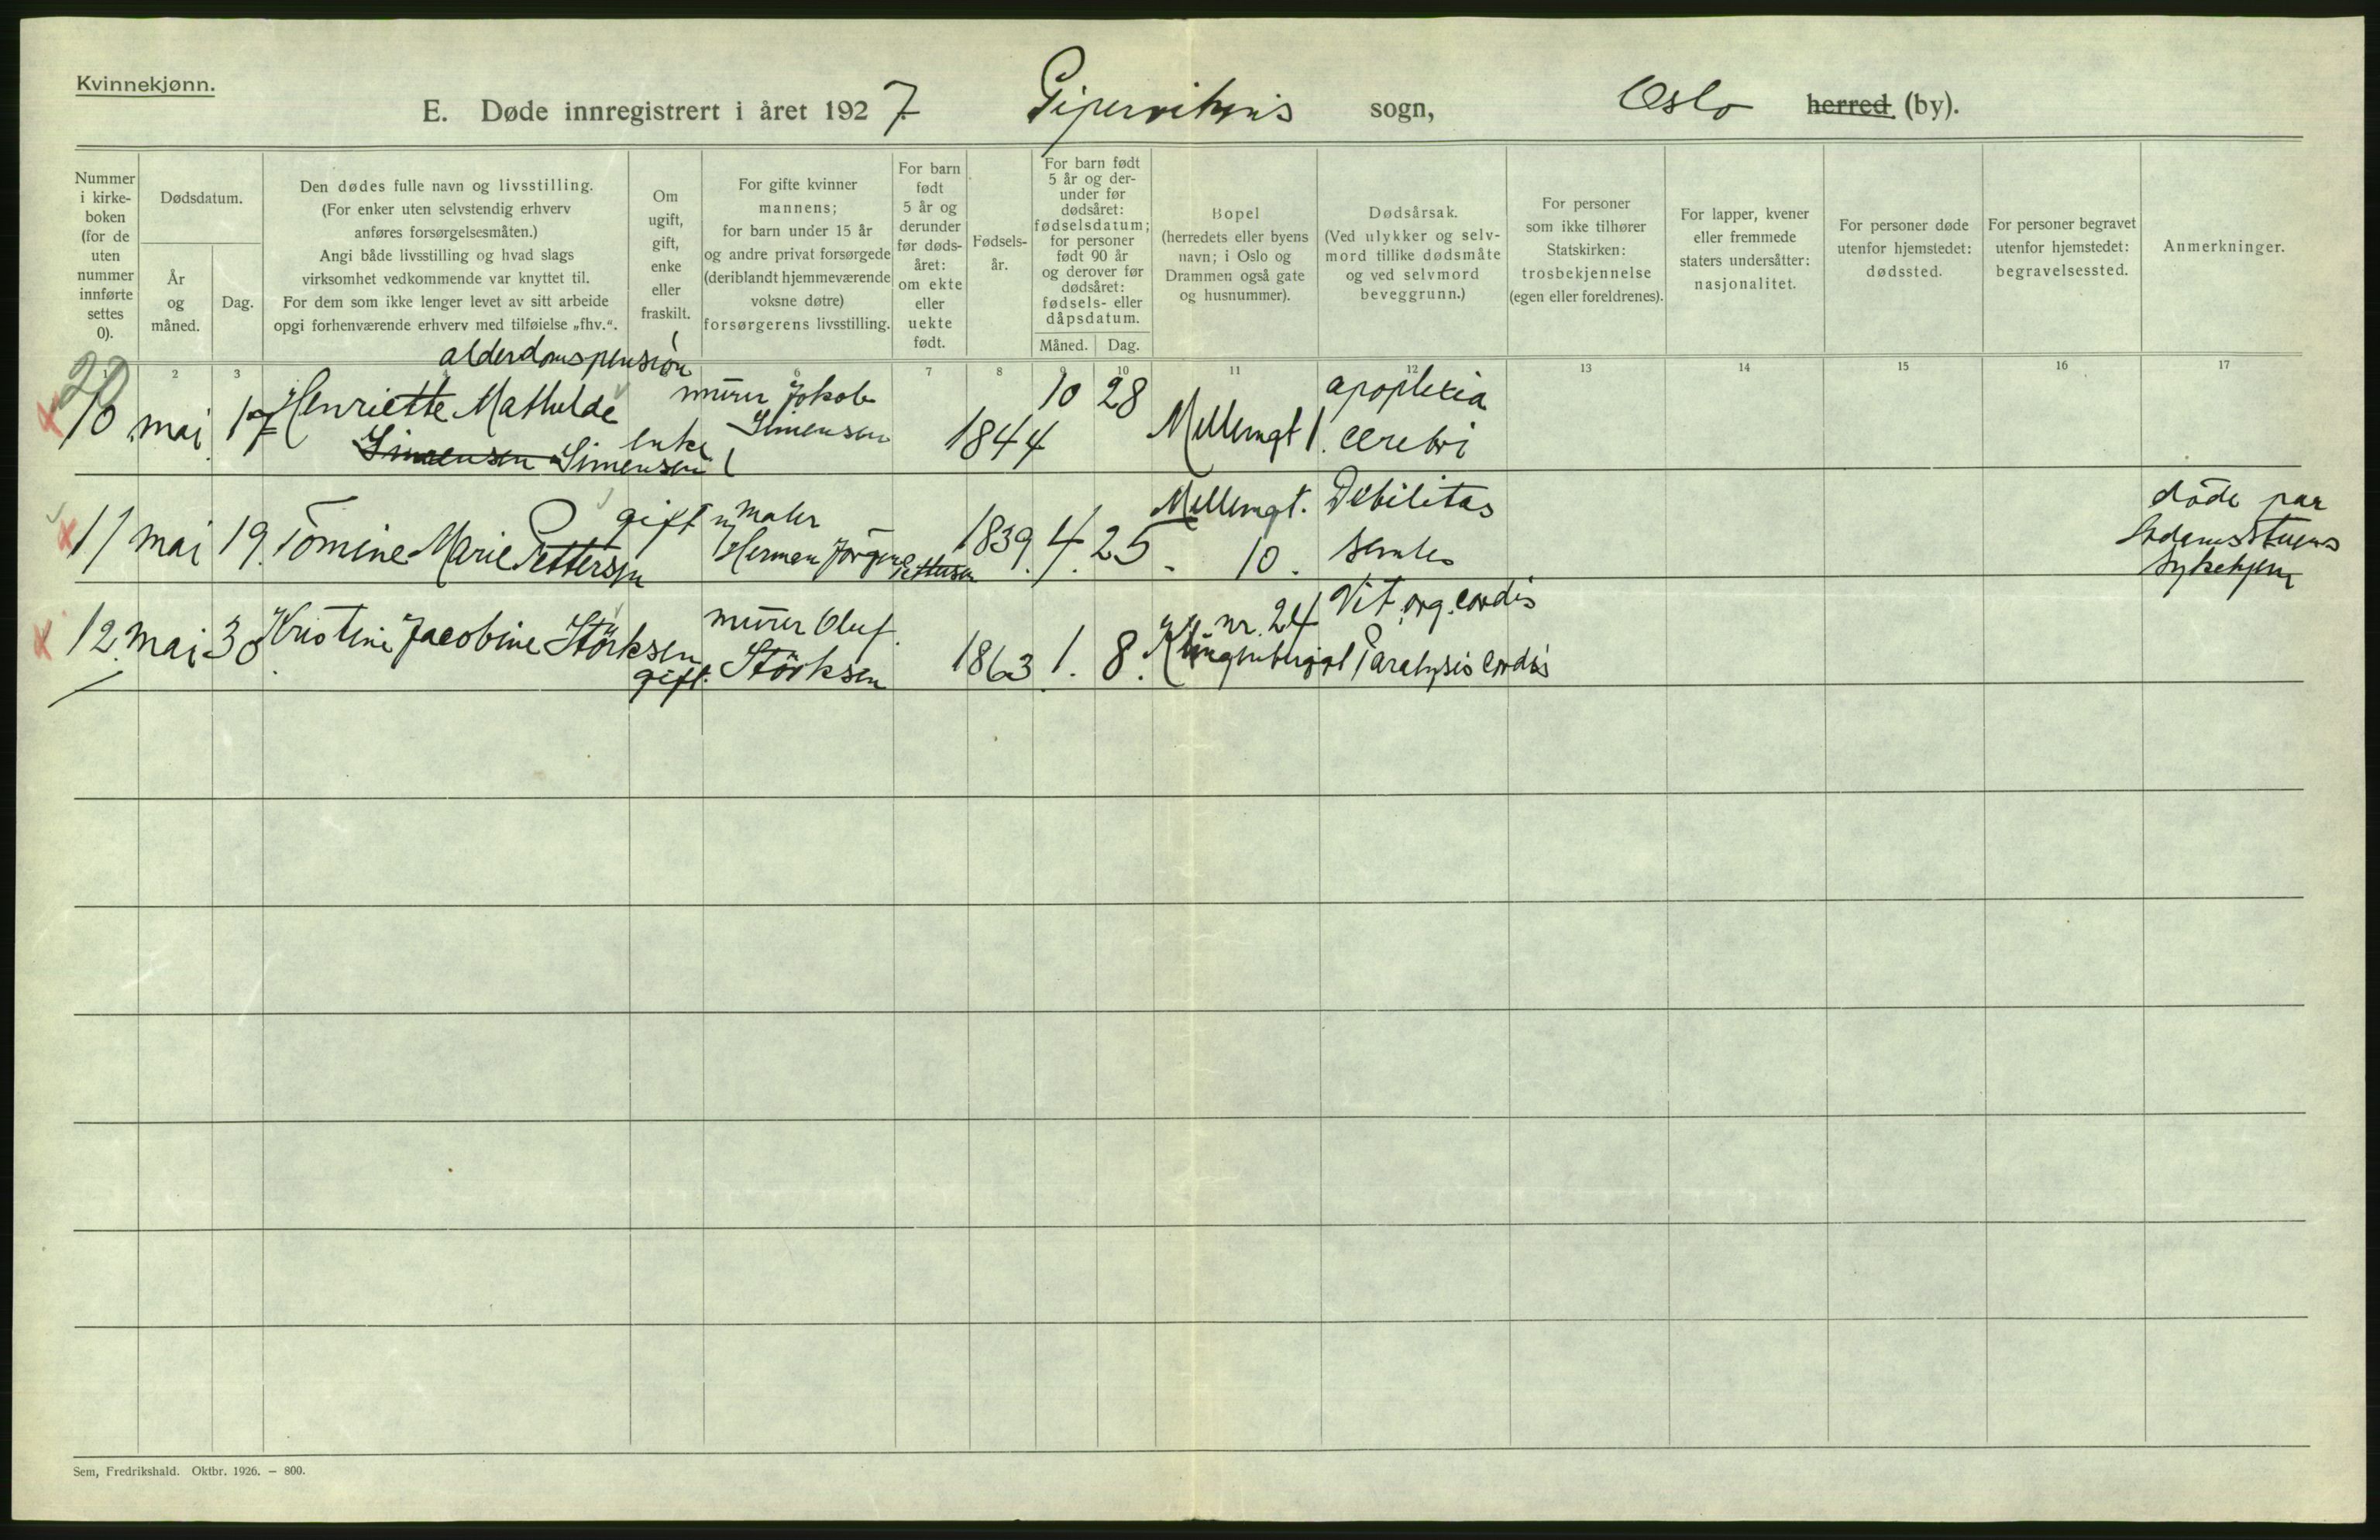 Kvinnekjønn.
E. Døde innregistrert i året 1927. Pipervikens sogn, Oslo herred (by).
Nummer
i kirke-
boken
(for de
uten
nummer
innførte
settes
0).
Dødsdatum.
År
og
måned.
Dag.
Den dødes fulle navn og livsstilling.
(For enker uten selvstendig erhverv
anføres forsørgelsesmåten.)
Angi både livsstilling og hvad slags
virksomhet vedkommende var knyttet til.
For dem som ikke lenger levet av sitt arbeide
opgi forhenværende erhverv med tilføielse „fhv.“.
Om
ugift,
gift,
enke
eller
fraskilt.
For gifte kvinner
mannens;
for barn under 15 år
og andre privat forsørgede
(deriblandt hjemmeværende
voksne døtre)
forsørgerens livsstilling.
For barn
født
5 år og
derunder
før døds-
året:
om ekte
eller
uekte
født.
Fødsels-
år.
For barn født
5 år og der-
under før
dødsåret:
fødselsdatum;
for personer
født 90 år
og derover før
dødsåret:
fødsels- eller
dåpsdatum.
Måned.
Dag.
Bopel
(herredets eller byens
navn; i Oslo og
Drammen også gate
og husnummer).
Dødsårsak.
(Ved ulykker og selv-
mord tillike dødsmåte
og ved selvmord
beveggrunn.)
For personer
som ikke tilhører
Statskirken:
trosbekjennelse
(egen eller foreldrenes).
For lapper, kvener
eller fremmede
staters undersåtter:
nasjonalitet.
For personer døde
utenfor hjemstedet:
dødssted.
For personer begravet
utenfor hjemstedet:
begravelsessted.
Anmerkninger.
1 2 3 4 6 7 8 9 10 11 12 13 14 15 16 17
20
alderdomspension
10 mai 17 Henriette Mathilde
Simensen Simensen
enke
murer Jokob
Simensen
1844
10 28
Mellemgt 1.
apoplexia
cerebri
11 mai 19. Tomine Marie Pettersen
gift
maler
Herman Jørgen
Pettersen
1839. 4. 25.
Mellemgt.
10.
Debilitas
senilis
døde paa
Adamsstuens
sykehjem
12. mai 30. Kristine Jacobine Störksen
gift.
murer Oluf
Störksen
1863 1. 8.
nr. 24
Klingenberggt
Vit. org. cordis
Paralysis cordis
Sem, Fredrikshald. Oktbr. 1926. — 800.